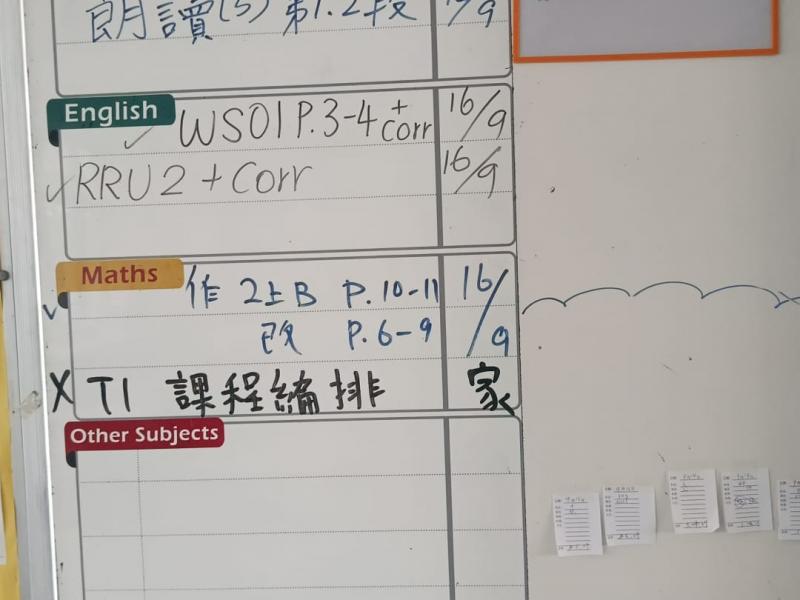 朗讀(3) 第1.2段 16/9
English
WS01 P.3-4 + Corr 16/9
RRU2 + Corr 16/9
Maths
作 2上B P.10-11 16/9
改 P.6-9
X T1 課程編排 家
Other Subjects